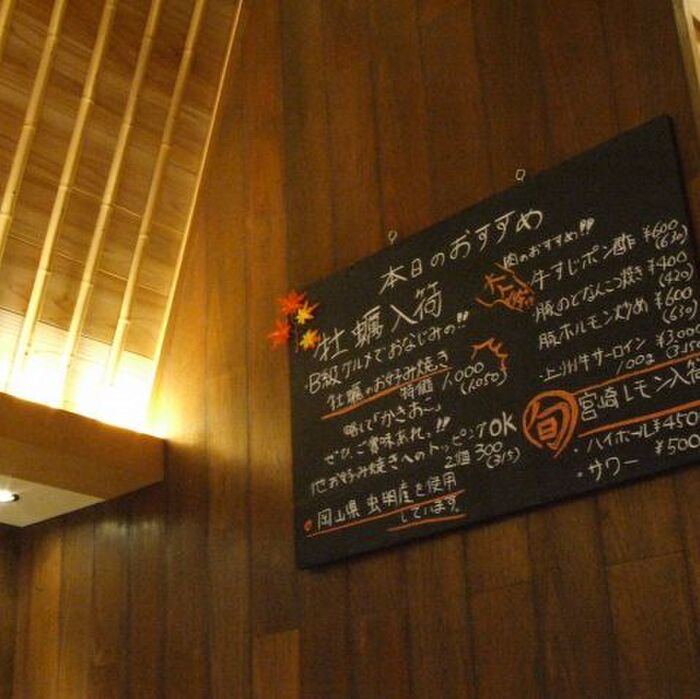 本日のおすすめ
牡蠣入荷
・B級グルメでおなじみの!!
牡蠣のお好み焼き
特価 1,000
(1,050)
略して「かきお〜」
ぜひ、ご賞味あれっ!!
他お好み焼きへのトッピングOK
2個 300
(315)
岡山県 虫明産を使用
しています。
肉のおすすめ!!
牛すじポン酢 ¥600
(630)
豚のどなんこつ焼き ¥400
(420)
豚ホルモン炒め ¥600
(630)
・上州牛サーロイン ¥3,000
100g (3,150)
旬 宮崎レモン入荷
・ハイボール ¥450
・サワー ¥500